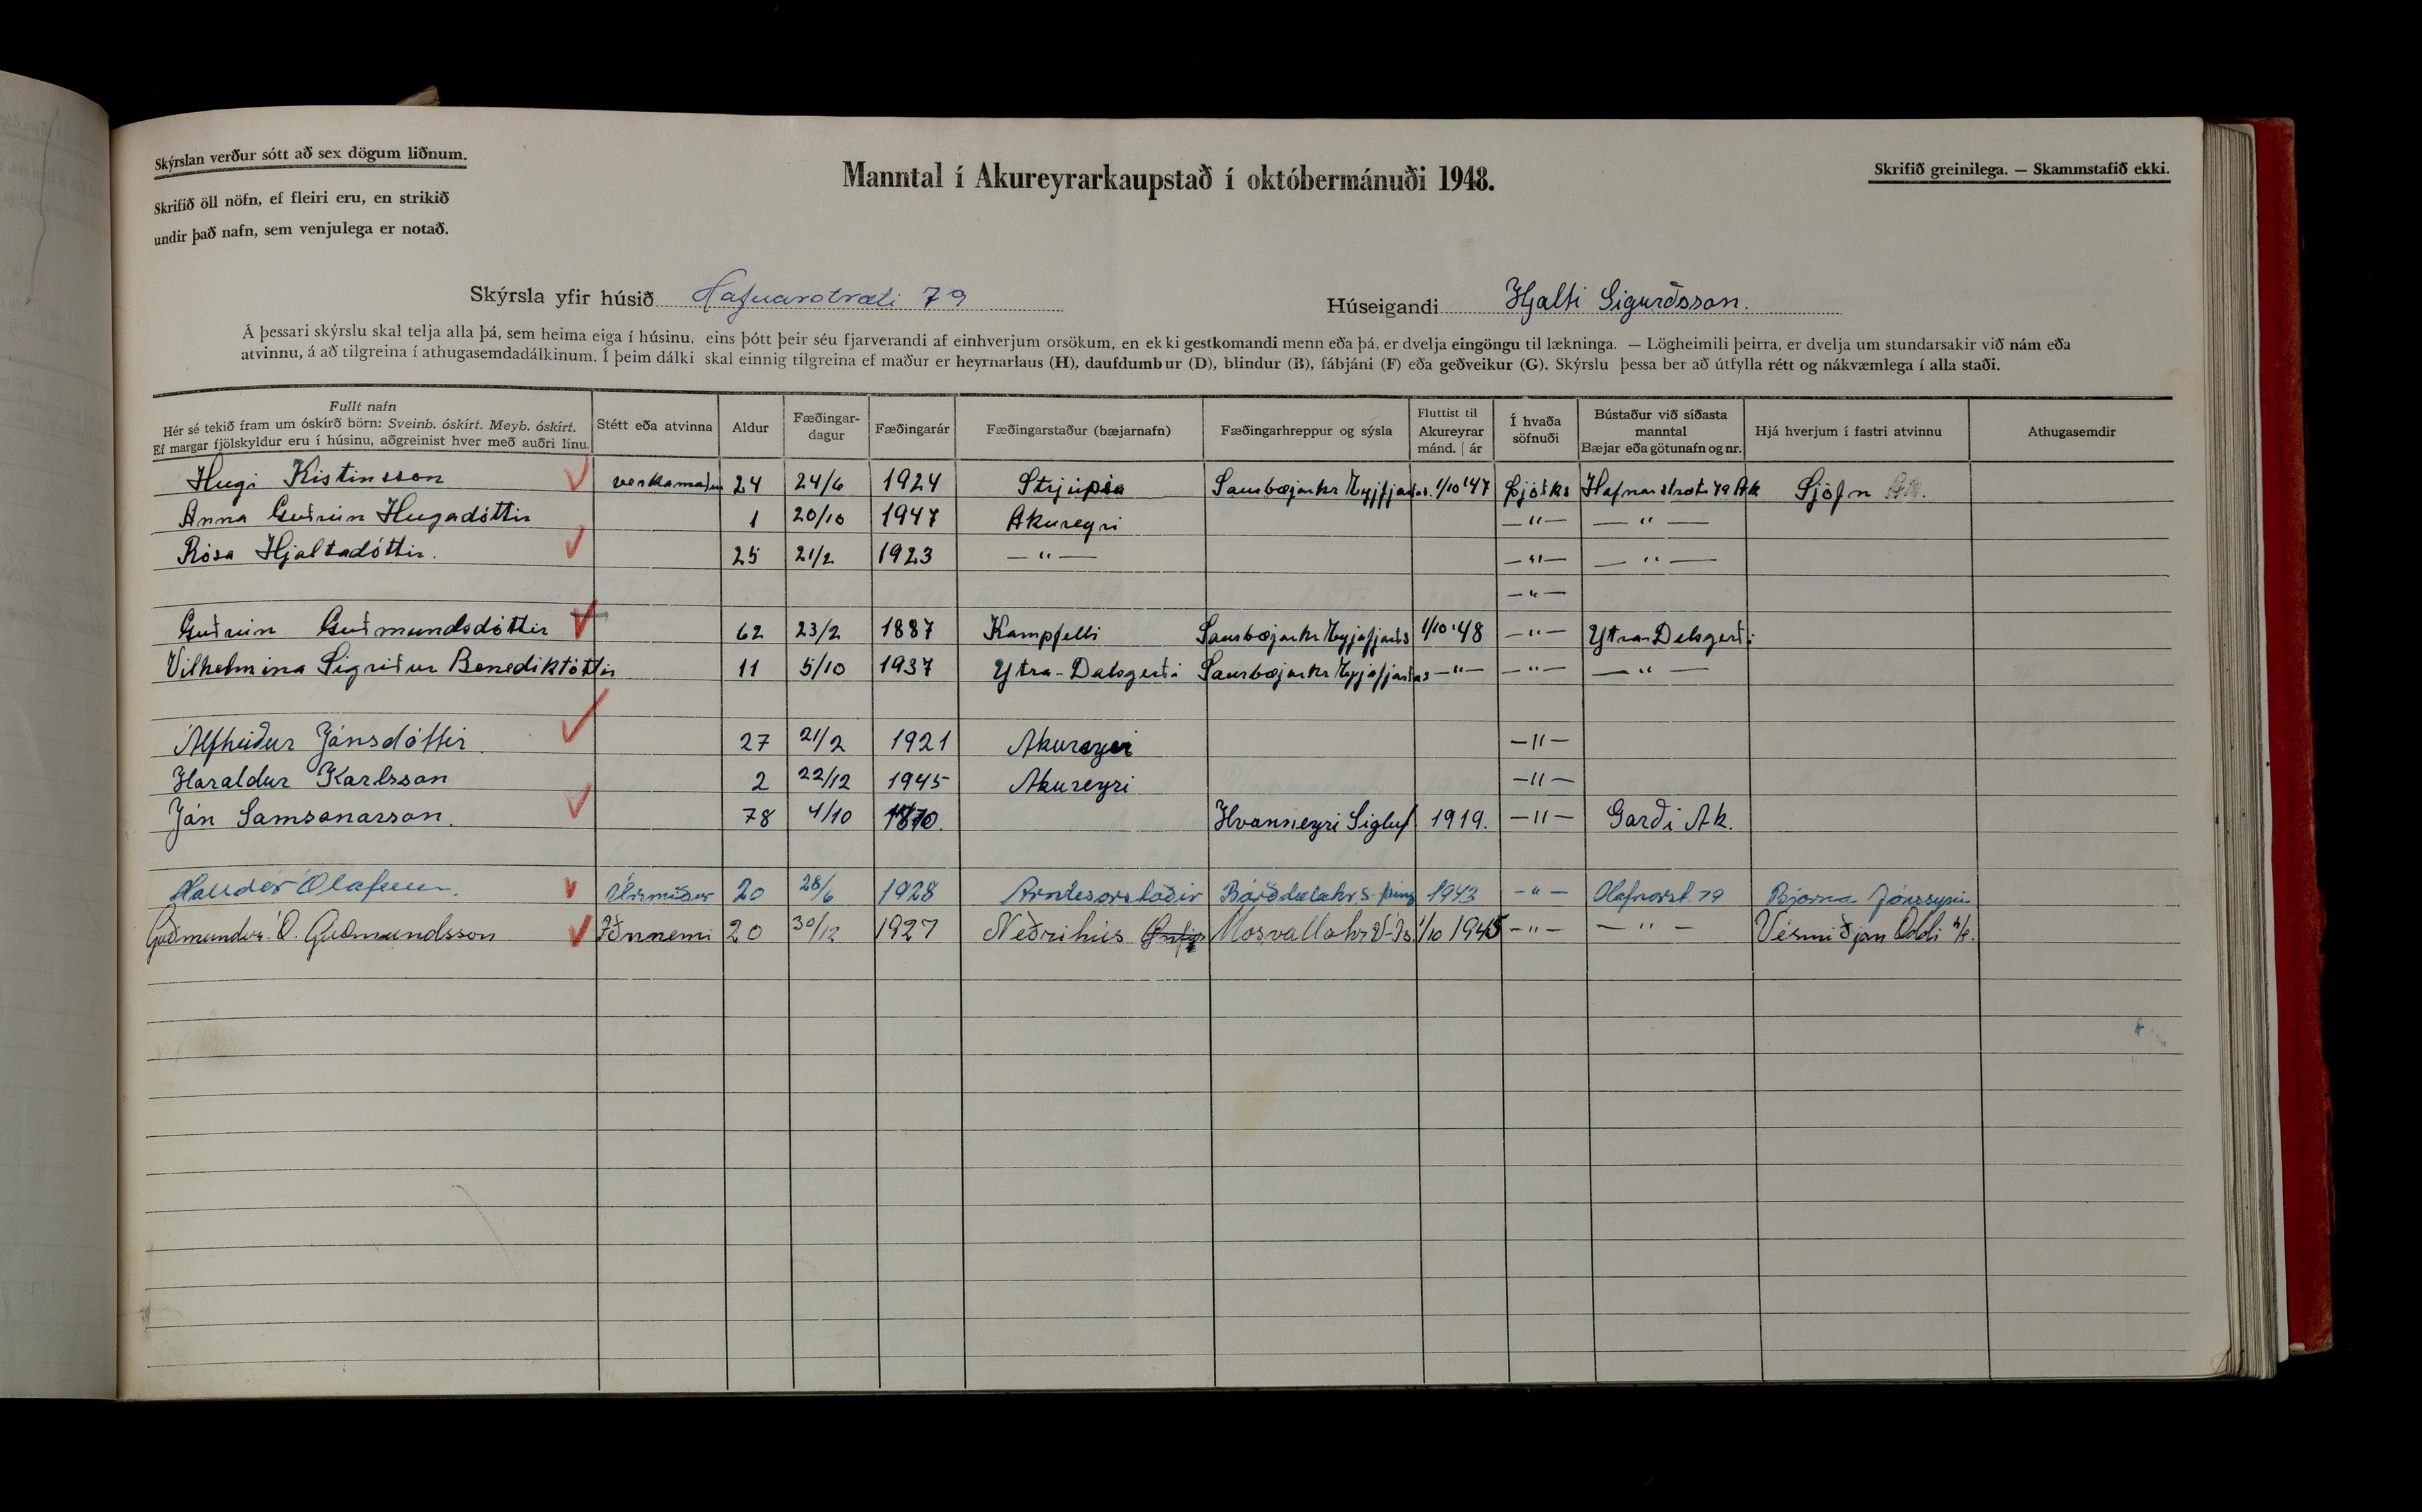 Skýrslan verður sótt að sex dögum liðnum.
Skrifið öll nöfn, ef fleiri eru, en strikið
undir það nafn, sem venjulega er notað.
Manntal í Akureyrarkaupstað í októbermánuði 1948.
Skrifið greinilega. — Skammstafið ekki.
Skýrsla yfir húsið Hafnarstræti 79 Húseigandi Hjalti Sigurðsson.
Á þessari skýrslu skal telja alla þá, sem heima eiga í húsinu, eins þótt þeir séu fjarverandi af einhverjum orsökum, en ekki gestkomandi menn eða þá, er dvelja eingöngu til lækninga. — Lögheimili þeirra, er dvelja um stundarsakir við nám eða
atvinnu, á að tilgreina í athugasemdadálkinum. Í þeim dálki skal einnig tilgreina ef maður er heyrnarlaus (H), daufdumbur (D), blindur (B), fábjáni (F) eða geðveikur (G). Skýrslu þessa ber að útfylla rétt og nákvæmlega í alla staði.
Fullt nafn
Hér sé tekið fram um óskírð börn: Sveinb. óskírt. Meyb. óskírt.
Ef margar fjölskyldur eru í húsinu, aðgreinist hver með auðri línu.
Stétt eða atvinna
Aldur
Fæðingar-
dagur
Fæðingarár
Fæðingarstaður (bæjarnafn)
Fæðingarhreppur og sýsla
Fluttist til
Akureyrar
mánd. | ár
Í hvaða
söfnuði
Bústaður við síðasta
manntal
Bæjar eða götunafn og nr.
Hjá hverjum í fastri atvinnu
Athugasemdir
Hugi Kistinsson verkamaður 24 24/6 1924 Strjúpsa Saurbæjarhr Eyjfjarðas. 1/10 '47 Þjóðks Hafnarstræti 79 Ak Sjöfn Ak.
Anna Guðrún Hugadóttir 1 20/10 1947 Akureyri —"— —"—
Rósa Hjaltadóttir. 25 21/2 1923 —"— —"— —"—
—"—
Guðrún Guðmundsdóttir 62 23/2 1887 Kampfelli Saurbæjarhr Eyjafjarðs 1/10 '48 —"— Ytra-Dalsgerði
Vilhelmína Sigríður Benediktóttir 11 5/10 1937 Ytra-Dalsgerði Saurbæjarhr Eyjafjarðas —"— —"— —"—
Álfheiður Jónsdóttir. 27 21/2 1921 Akureyri —"—
Haraldur Karlsson 2 22/12 1945 Akureyri —"—
Ján Samsonarson. 78 4/10 1870. Hvanneyri Sigluf 1919. —"— Garði Ak.
Halldór Ólafsson. Úrsmiður 20 28/6 1928 Arndísarstaðir Bárðdælahr. S-Þing 1943 —"— Hafnarst. 79 Bjarna Jónssyni
Guðmundur Ó. Guðmundsson Iðnnemi 20 30/12 1927 Neðrihús Mosvallahr. V-Ís 1/10 1945 —"— —"— Vésmiðjan Oddi h/f.